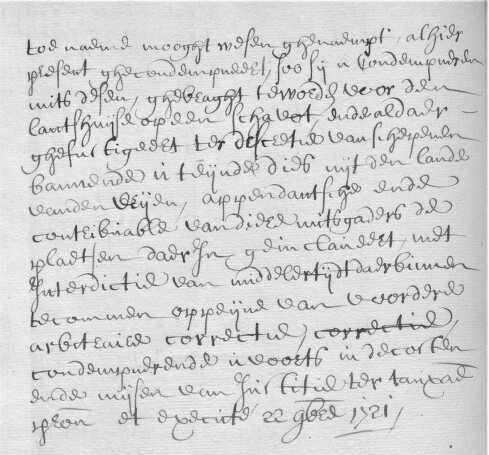 toe naeme mooght wesen ghenaempt, alhier
present ghecondempneert, soo sij u Condempneren
mits desen, ghebraght te worden voor den
lantshuijse op een schavot ende aldaer
ghefustigeert ter discretie van schepenen
bannende u teijnde dies uijt den lande
vanden vrijen, appendantsche ende
contribuable van diere mitsgaders de
plaetsen daer In geinclaveert, met
Interdictie van middelertijdt daer binnen
te commen op peijne van voordere
arbitraire correctie, correctie,
condempnerende u voorts in de costen
ende mijsen van Justitie ter tauxatie
pron et execute 22 gbre 1721